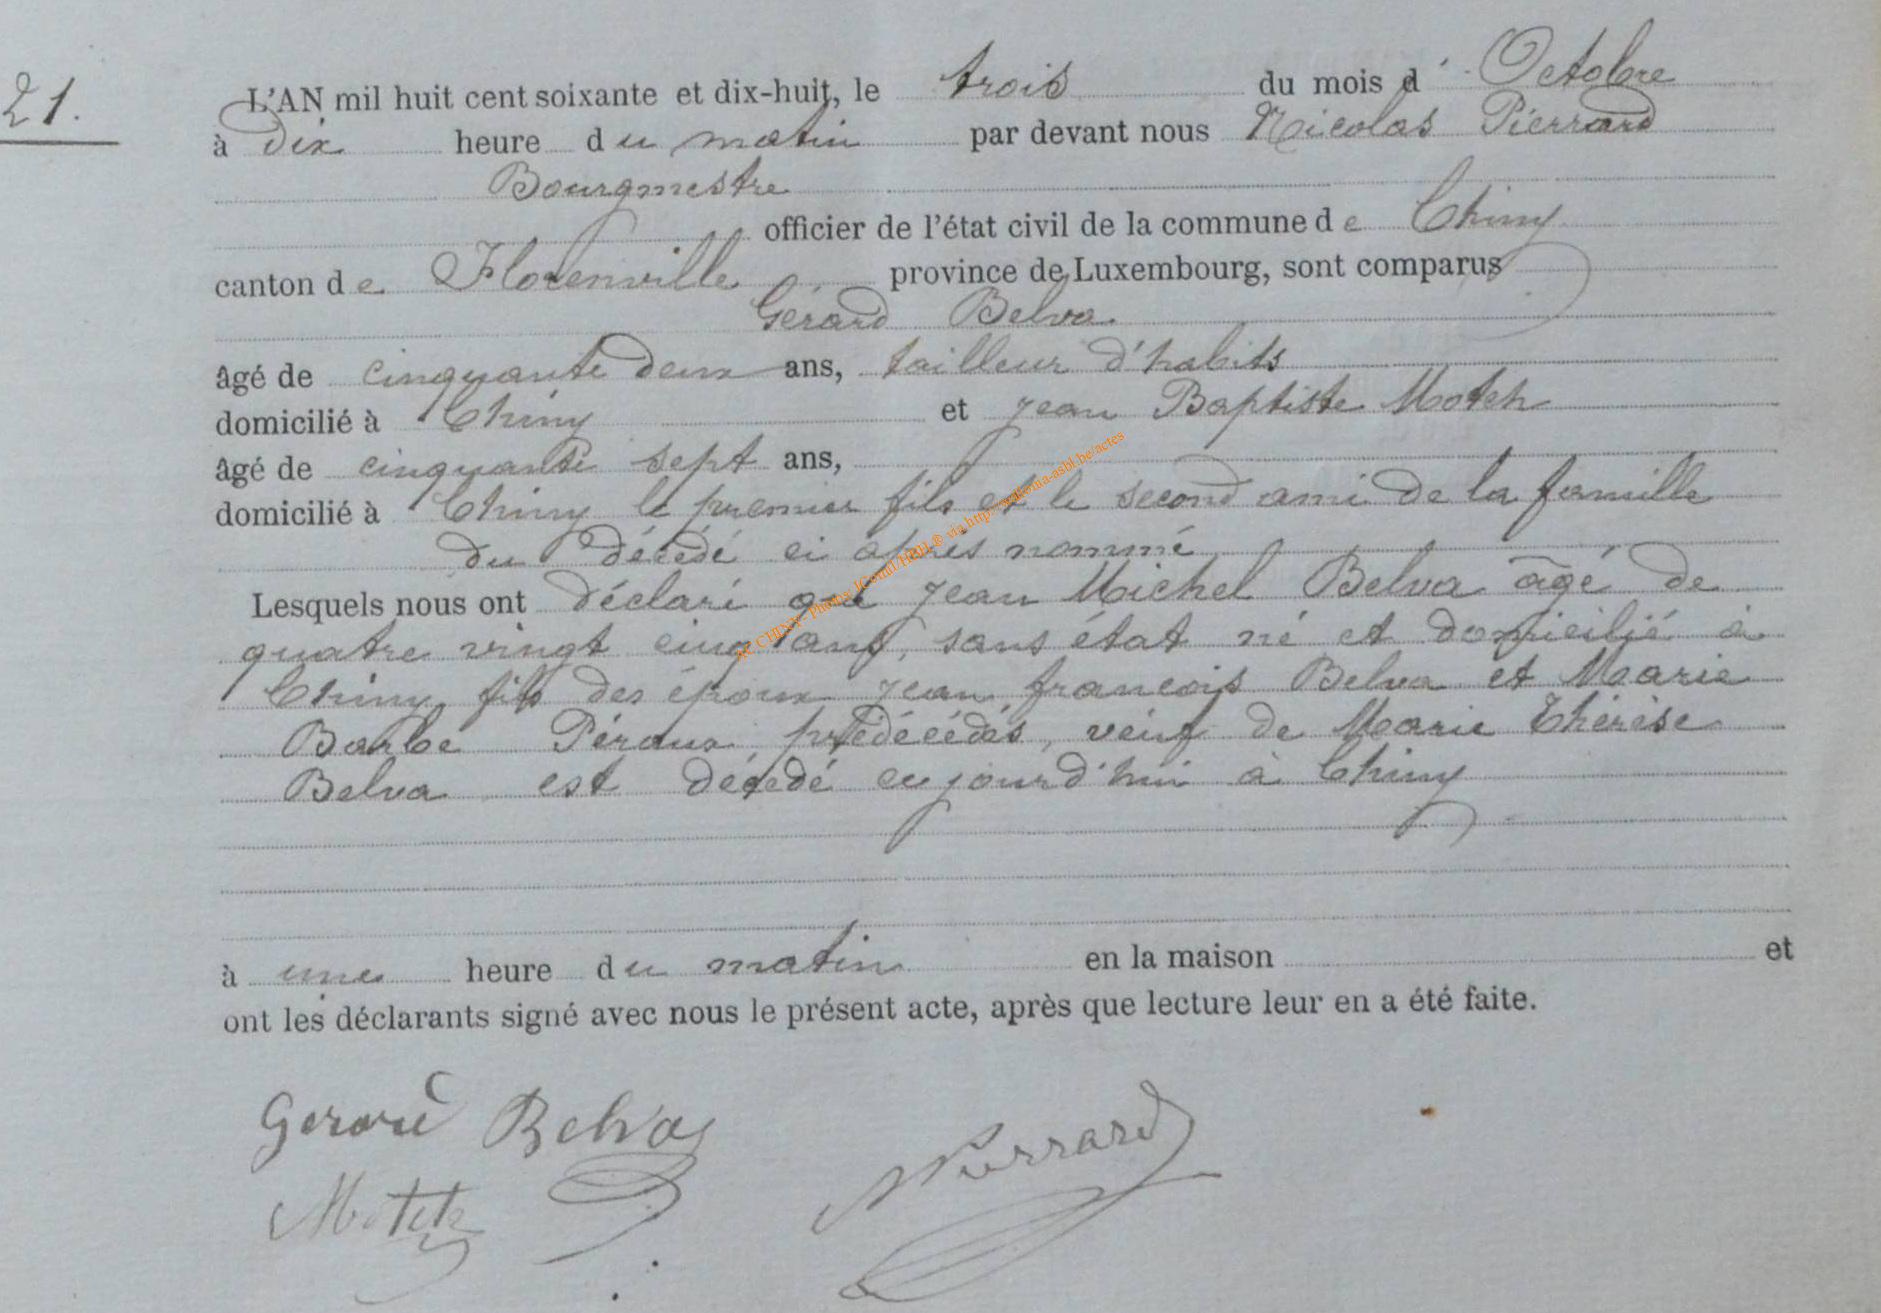 21.
L'AN mil huit cent soixante et dix-huit, le trois du mois d' Octobre
à dix heure du matin par devant nous Nicolas Pierrard
Bourgmestre
officier de l'état civil de la commune de Chiny
canton de Florenville province de Luxembourg, sont comparus
Gérard Belva
âgé de cinquante deux ans, tailleur d'habits
domicilié à Chiny et Jean Baptiste Motch
âgé de cinquante sept ans,
domicilié à Chiny le premier fils et le second ami de la famille
du décédé ci après nommé
Lesquels nous ont déclaré que Jean Michel Belva âgé de
quatre vingt cinq ans, sans état né et domicilié à
Chiny, fils des époux Jean françois Belva et Marie
Barbe Péraux, prédécédés, veuf de Marie Thérèse
Belva est décédé cejourd'hui à Chiny
à une heure du matin en la maison et
ont les déclarants signé avec nous le présent acte, après que lecture leur en a été faite.
Gerard Belva
Motch
NPierrard
CHINY - Photos JComij/HRH® via http://.asbl.be/actes